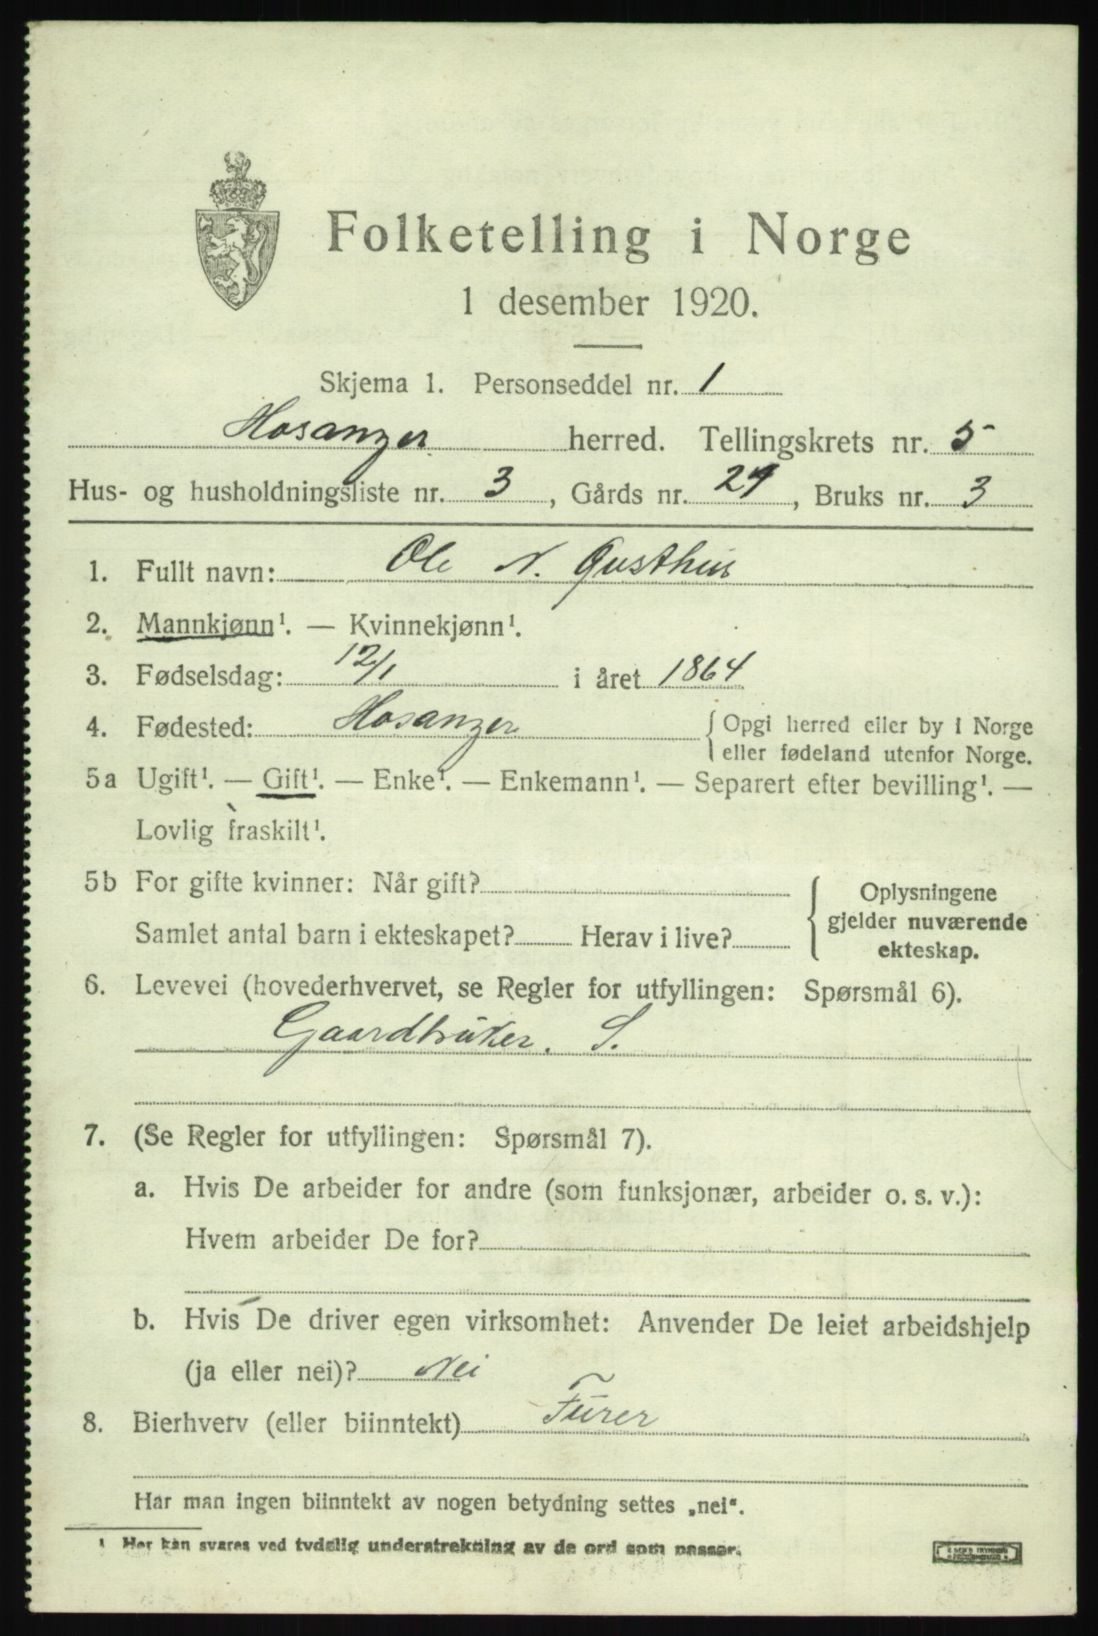 Folketelling i Norge
1 desember 1920.
Skjema 1. Personseddel nr. 1
Hosanger herred. Tellingskrets nr. 5
Hus- og husholdningsliste nr. 3, Gårds nr. 29, Bruks nr. 3
1. Fullt navn: Ole N.
2. Mannkjønn¹. — Kvinnekjønn¹.
3. Fødselsdag: 12/1 i året 1864
4. Fødested: Hosanger { Opgi herred eller by i Norge
eller fødeland utenfor Norge.
5a Ugift¹. — Gift¹. — Enke¹. — Enkemann¹. — Separert efter bevilling¹. —
Lovlig fraskilt¹.
5b For gifte kvinner: Når gift? { Oplysningene
gjelder nuværende
Samlet antal barn i ekteskapet? Herav i live?
ekteskap.
6. Levevei (hovederhvervet, se Regler for utfyllingen: Spørsmål 6).
Gaardbruker. S.
7. (Se Regler for utfyllingen: Spørsmål 7).
a. Hvis De arbeider for andre (som funksjonær, arbeider o. s. v.):
Hvem arbeider De for?
b. Hvis De driver egen virksomhet: Anvender De leiet arbeidshjelp
(ja eller nei)? Nei
8. Bierhverv (eller biinntekt) Furer
Har man ingen biinntekt av nogen betydning settes „nei“.
¹ Her kan svares ved tydelig understrekning av de ord som passer.